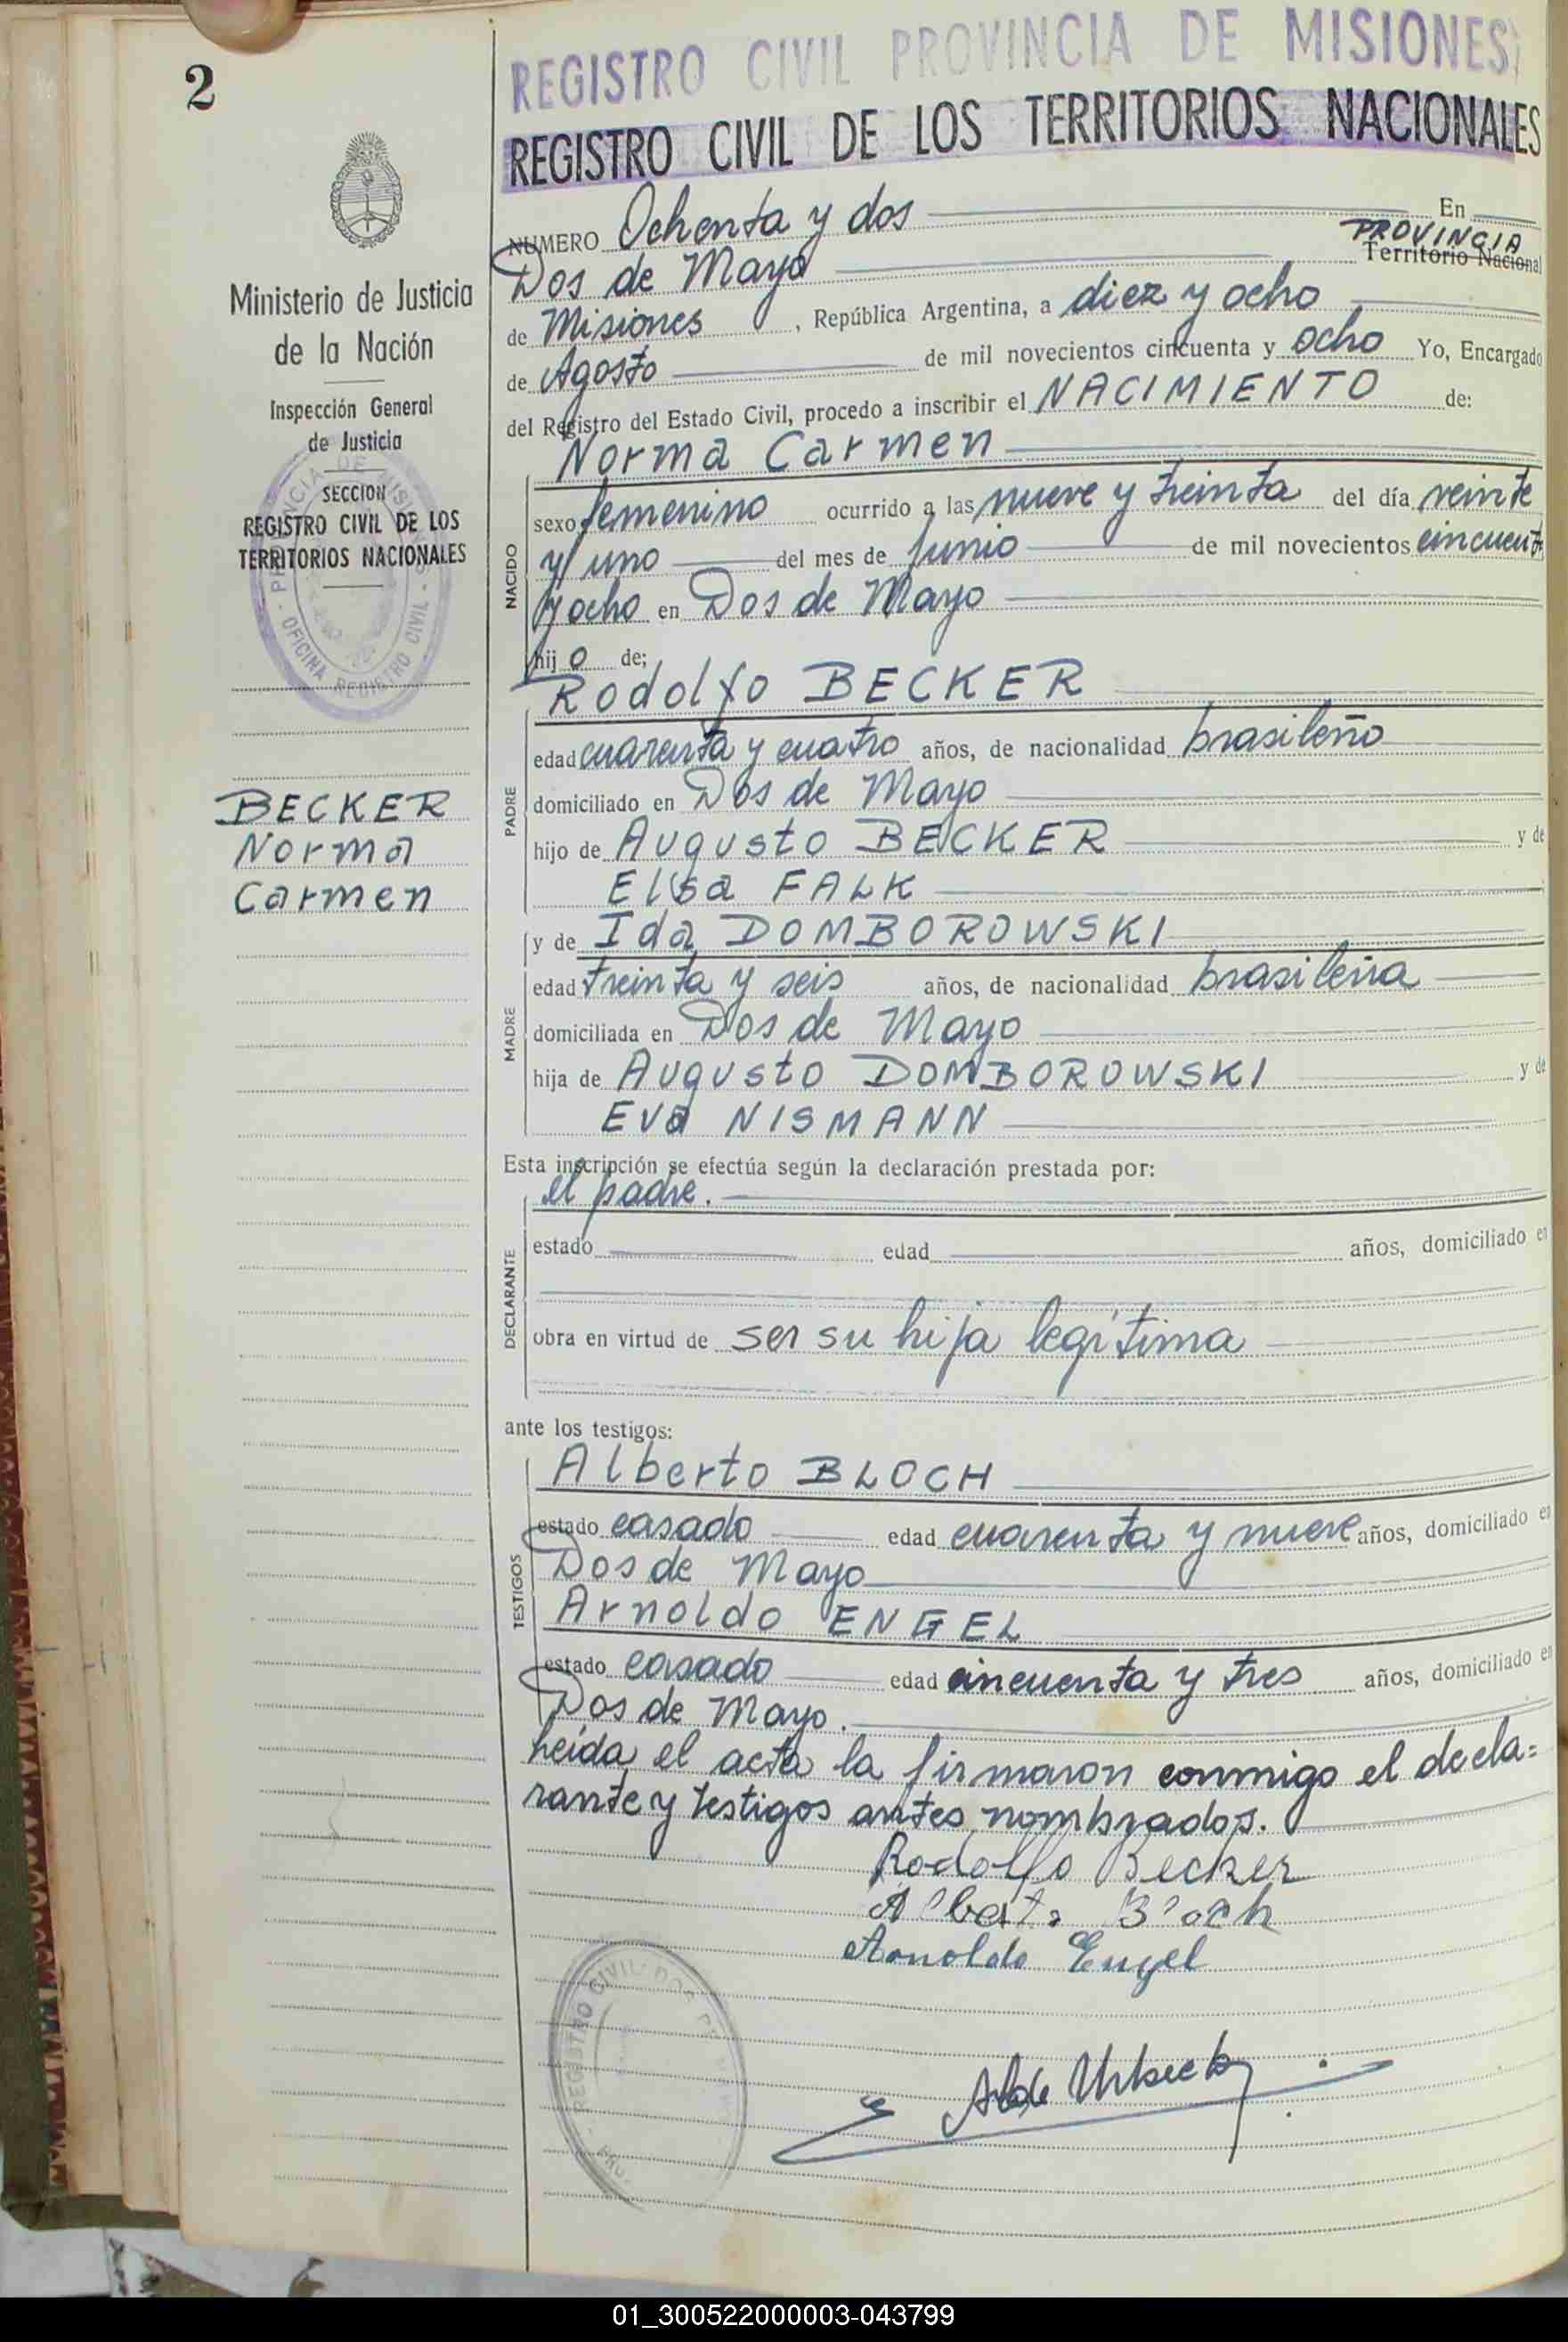 2
Ministerio de Justicia
de la Nación
Inspección General
de Justicia
SECCION
REGISTRO CIVIL DE LOS
TERRITORIOS NACIONALES
BECKER
Norma
Carmen
REGISTRO CIVIL PROVINCIA DE MISIONES
REGISTRO CIVIL DE LOS TERRITORIOS NACIONALES
NUMERO Ochenta y dos En
PROVINCIA
Dos de Mayo Territorio Nacional
de Misiones , República Argentina, a diez y ocho
de Agosto de mil novecientos cincuenta y ocho Yo, Encargado
del Registro del Estado Civil, procedo a inscribir el NACIMIENTO de:
Norma Carmen
NACIDO
sexo femenino ocurrido a las nueve y treinta del día veinte
y uno del mes de Junio de mil novecientos cincuenta
y ocho en Dos de Mayo
hij o de;
Rodolfo BECKER
PADRE
edad cuarenta y cuatro años, de nacionalidad brasileño
domiciliado en Dos de Mayo
hijo de Augusto BECKER y de
Elsa FALK
y de Ida DOMBOROWSKI
MADRE
edad treinta y seis años, de nacionalidad brasileña
domiciliada en Dos de Mayo
hija de Augusto DOMBOROWSKI y de
Eva NISMANN
Esta inscripción se efectúa según la declaración prestada por:
el padre.
DECLARANTE
estado edad años, domiciliado en
obra en virtud de ser su hija legítima
ante los testigos:
Alberto BLOCH
TESTIGOS
estado casado edad cuarenta y nueve años, domiciliado en
Dos de Mayo
Arnoldo ENGEL
estado casado edad cincuenta y tres años, domiciliado en
Dos de Mayo.
Leída el acta la firmaron conmigo el decla=
rante y testigos antes nombrados.
Rodolfo Becker
Alberto Bloch
Arnoldo Engel
REGISTRO CIVIL
01_300522000003-043799